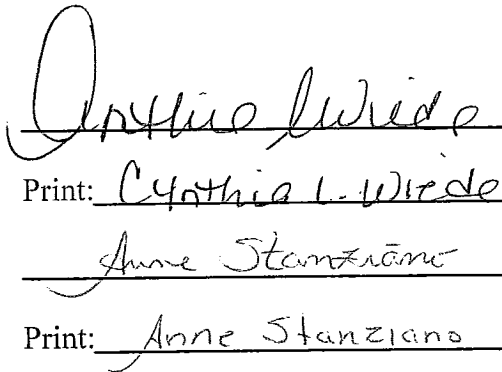 Cynthia L Wiede
Print: Cynthia L. Wiede
Anne Stanziano
Print: Anne Stanziano